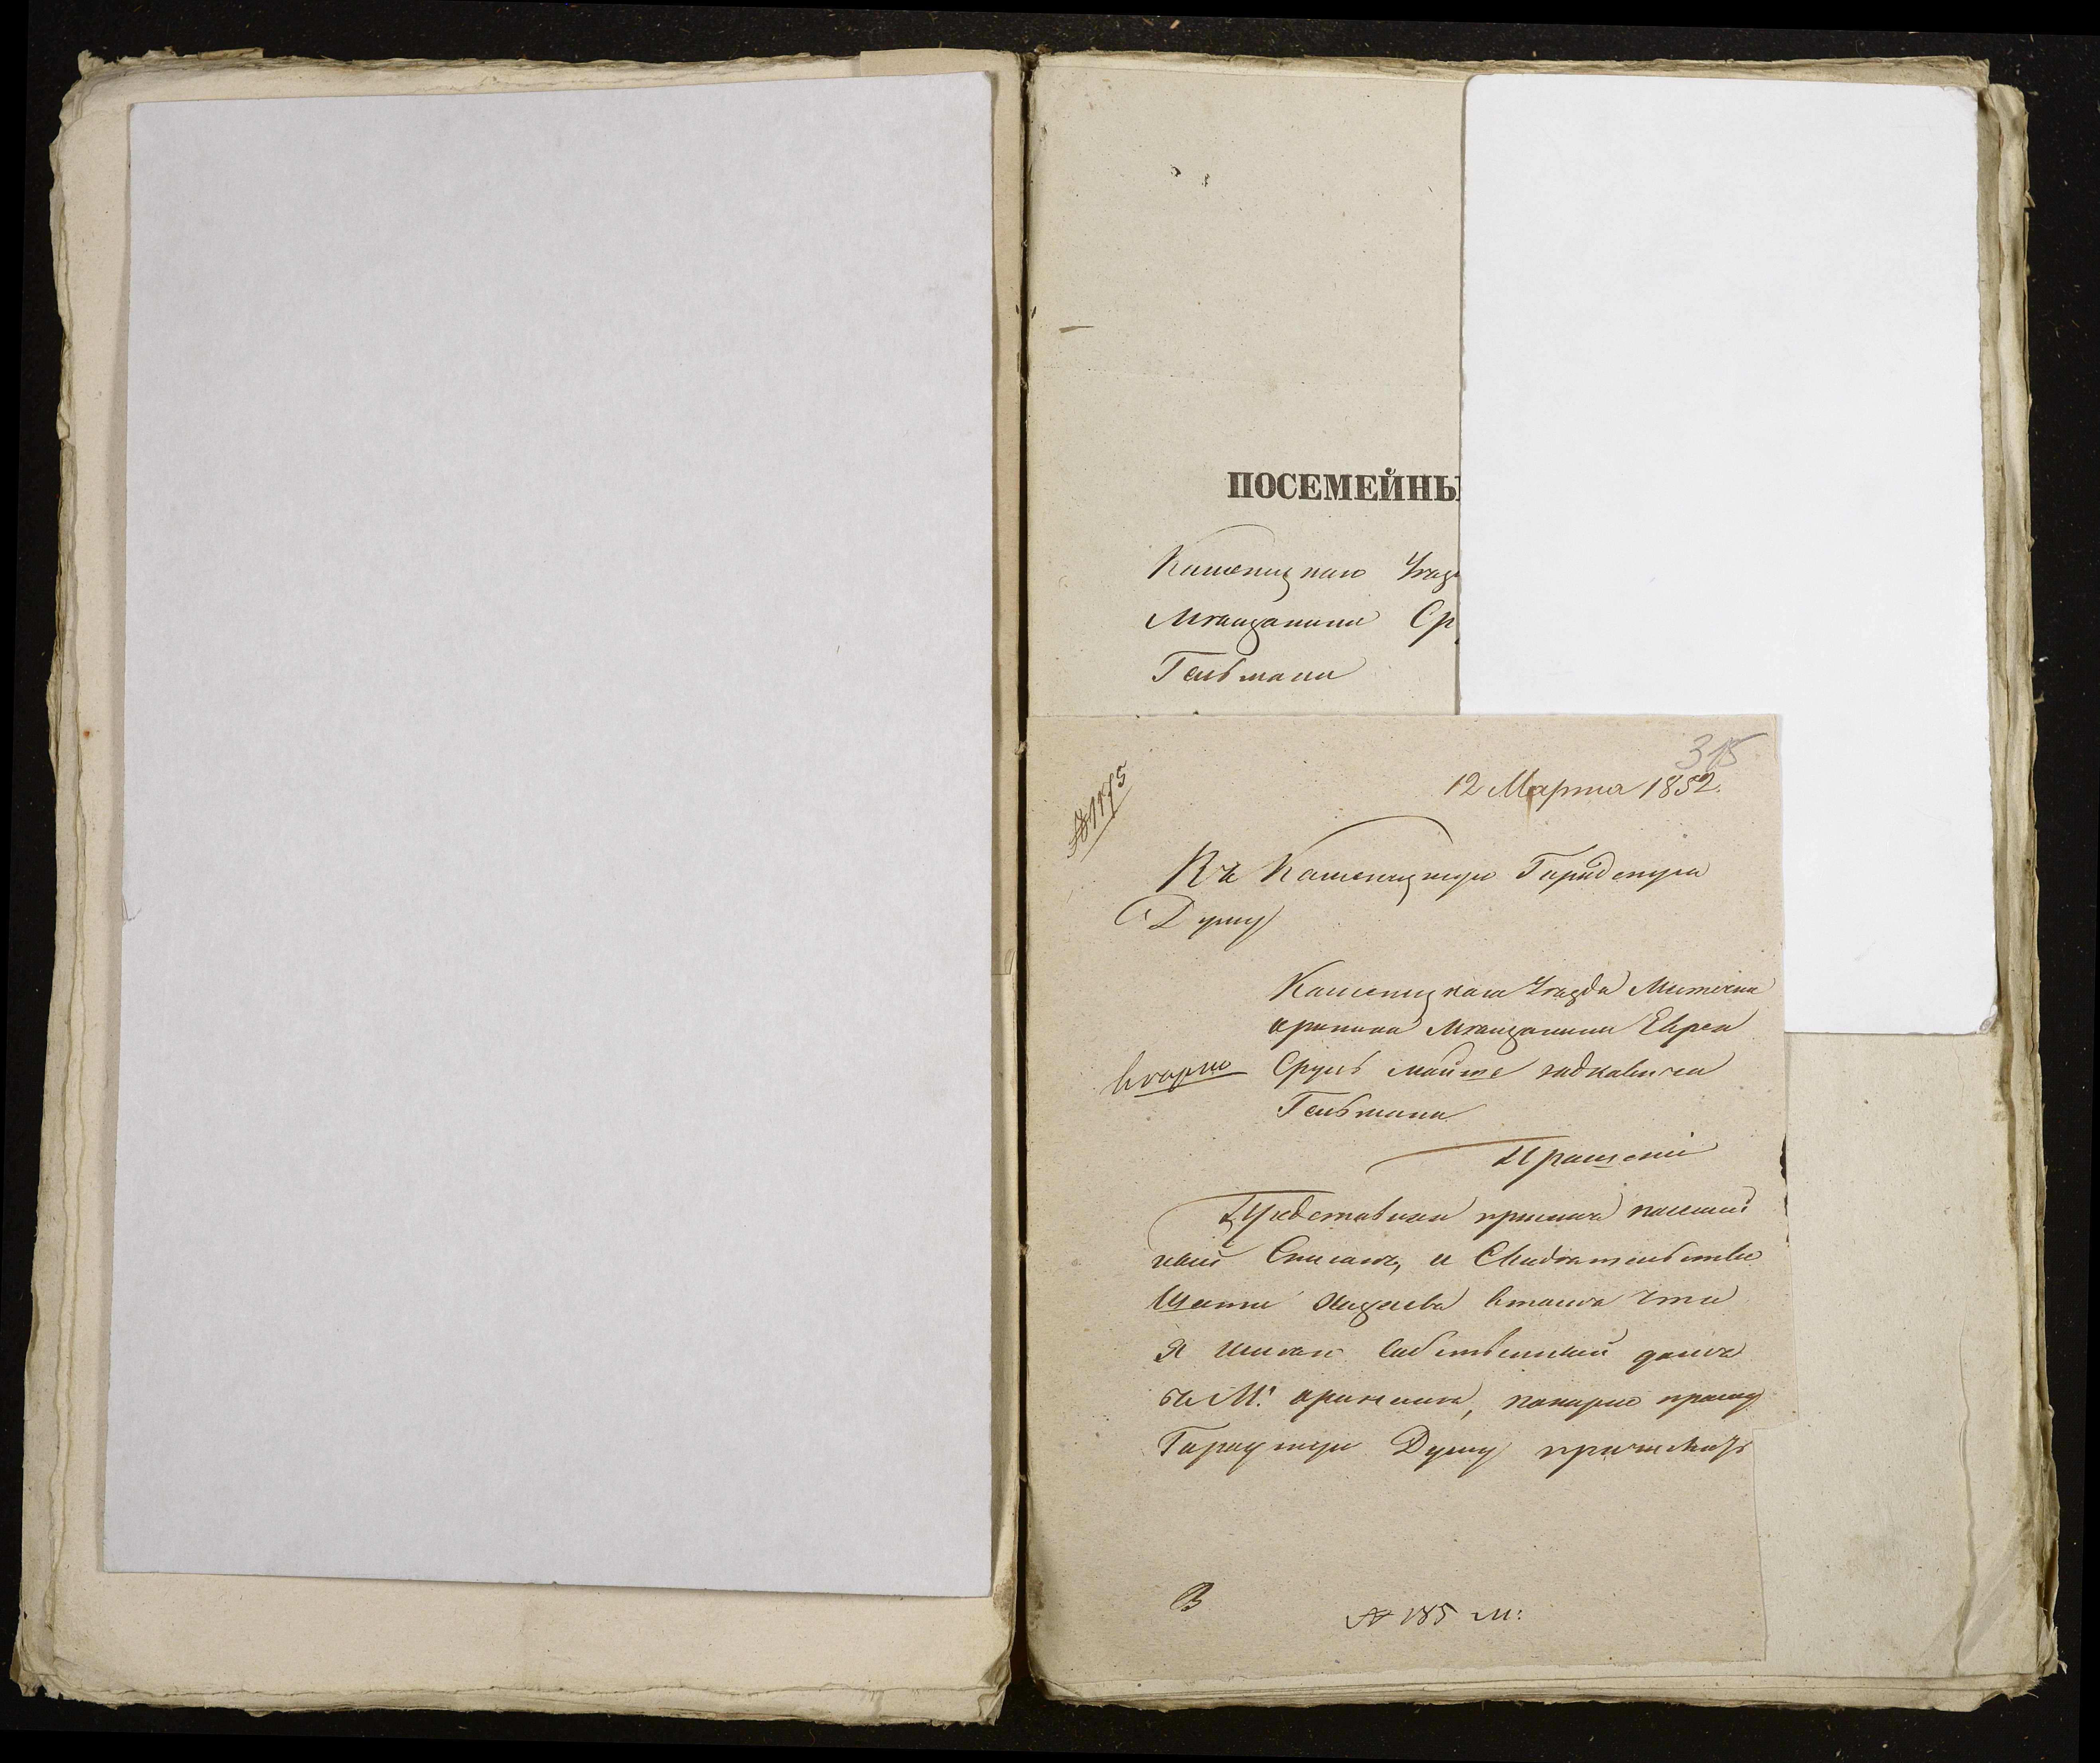 ПОСЕМЕЙНЫ
Каменецкаго Уезд
Мещанина Ср
Гельмана
315
12 Марта 1852.
№ 1175
Въ Каменецкую Городскую
Думу
Каменецкаго Уезда Местечка
Мещанина Еврея
Сруль
Гельмана
Прошеніе
Представляя при семъ посемей
ный Списокъ, и Свидетельство
въ томъ что
Я имею собственный домъ
въ М:, покорно прошу
Городскую Думу
В
№ 185 М: